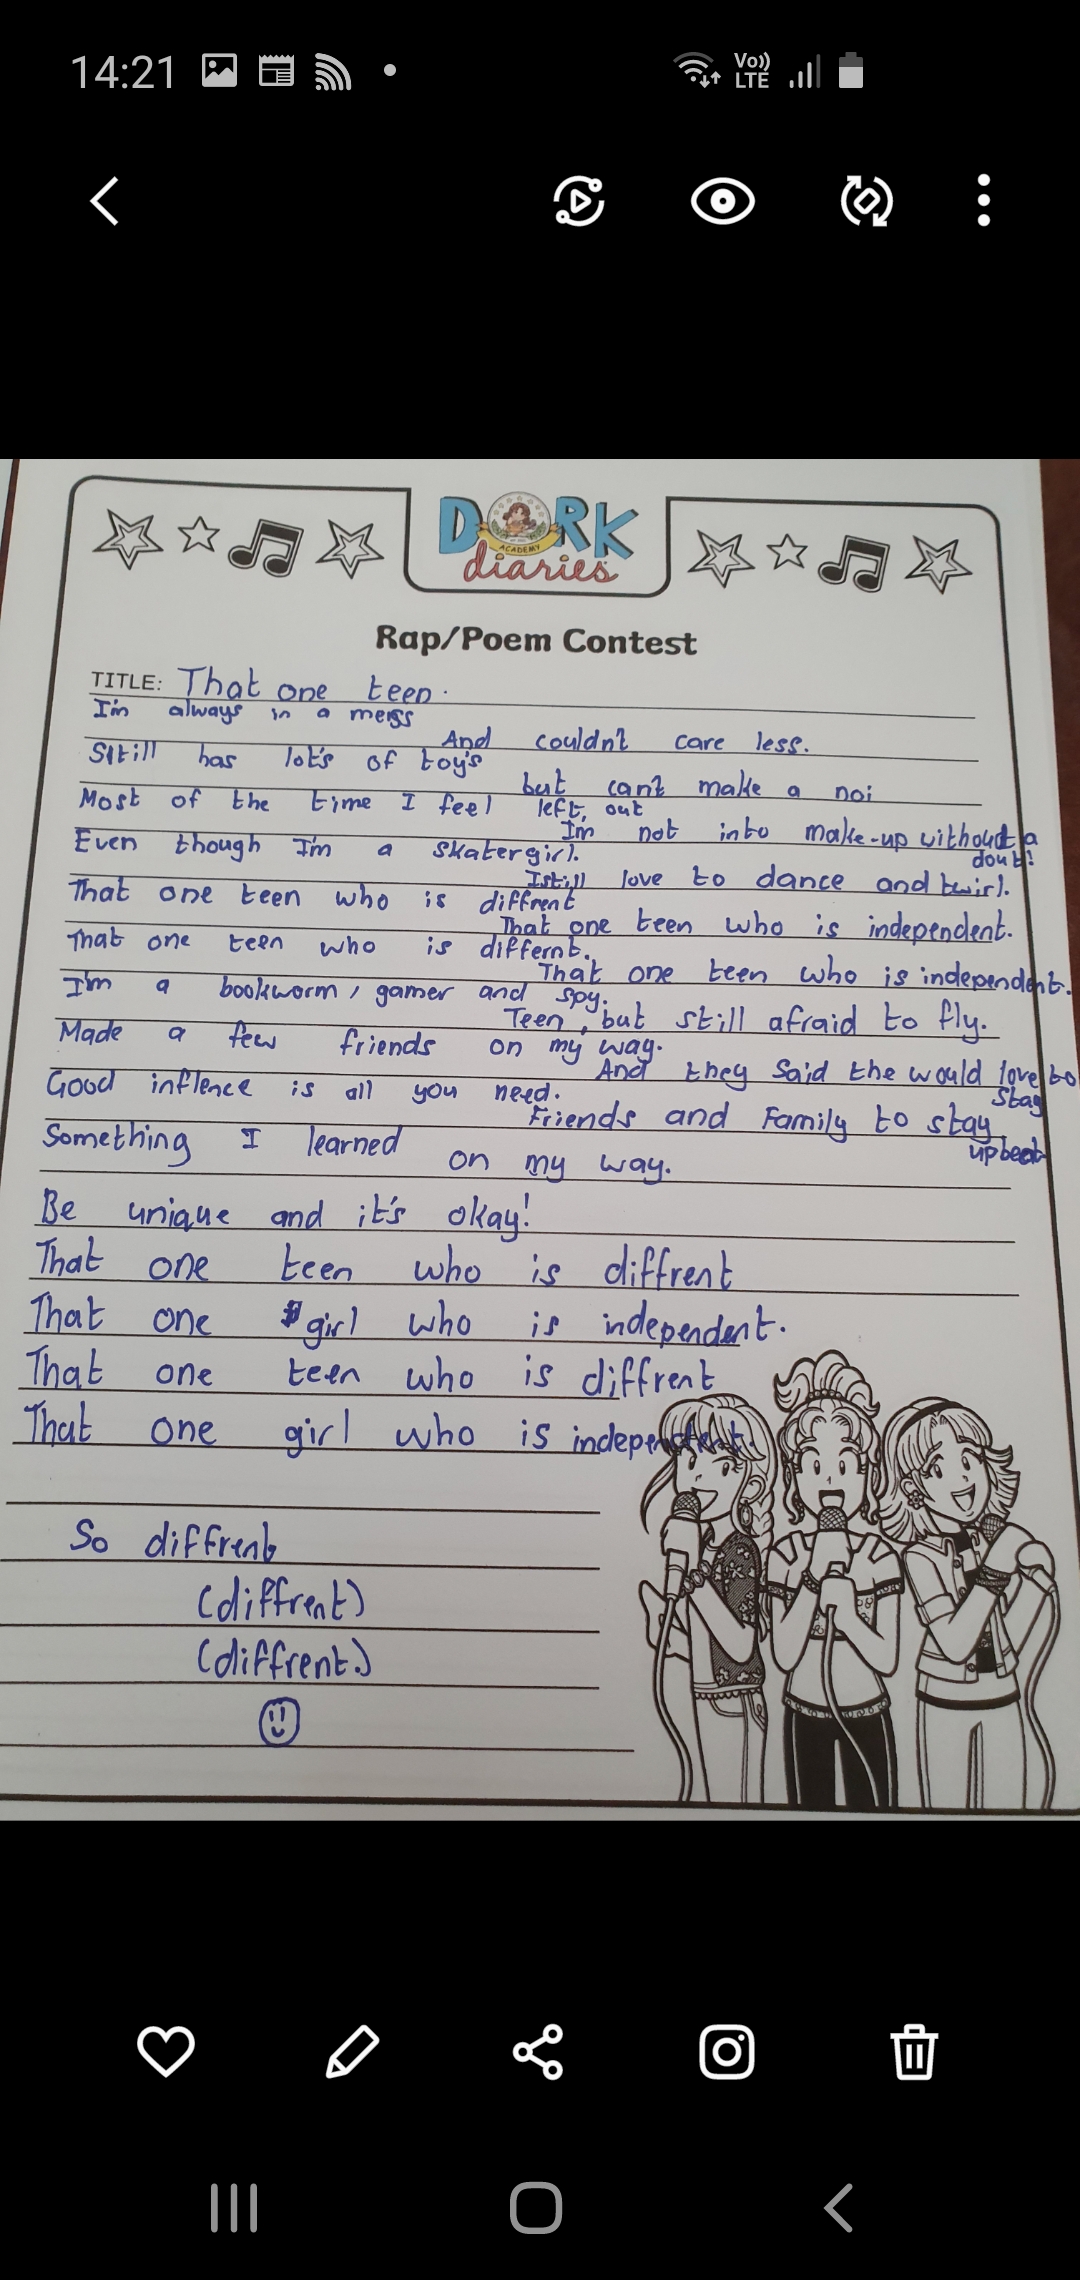 14:21
Vo))
LTE
DORK
ACADEMY
diaries
Rap/Poem Contest
TITLE: That one teen.
I'm always in a mess
And couldn't care less.
Still has lot's of toy's
but can't make a noi
Most of the time I feel left, out
I'm not into make-up without a
dout!
Even though I'm a skatergirl.
I still love to dance and twirl.
That one teen who is diffrent
That one teen who is independent.
That one teen who is differnt.
That one teen who is independent.
I'm a bookworm, gamer and spy.
Teen, but still afraid to fly.
Made a few friends on my way.
And they said the would love to
stay
Good inflence is all you need.
Friends and Family to stay
upbeat
Something I learned on my way.
Be unique and it's okay!
That one teen who is diffrent
That one girl who is independent.
That one teen who is diffrent
That one girl who is independent.
So diffrent
(diffrent)
(diffrent.)